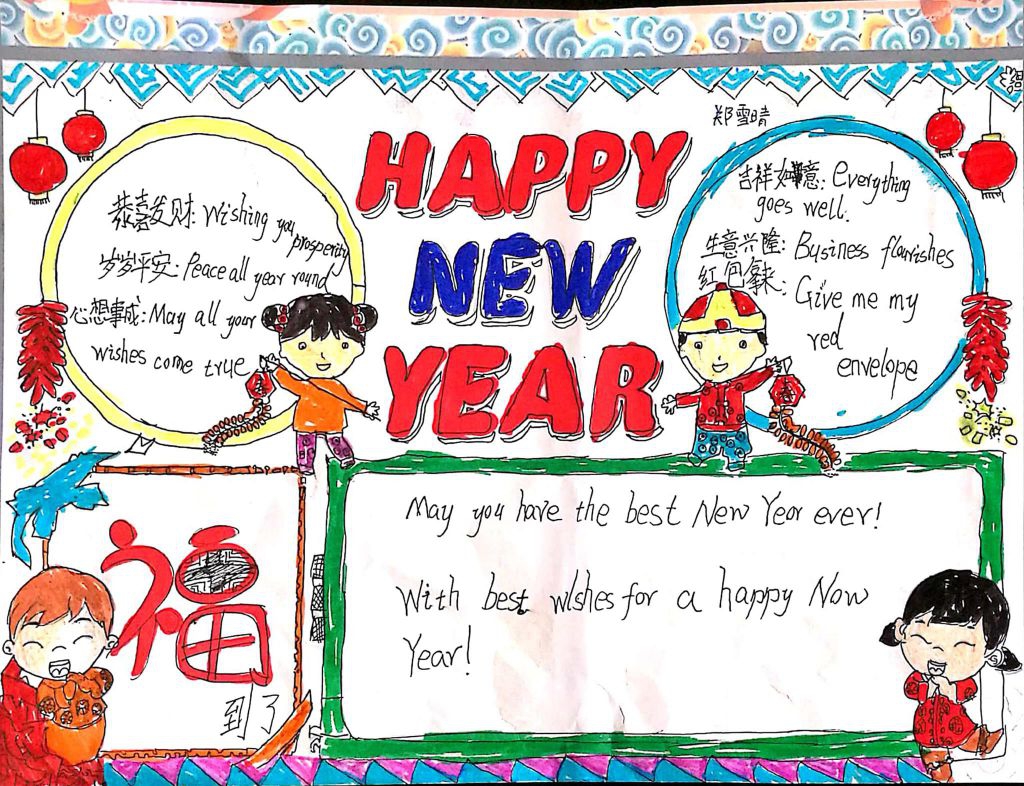 郑雪晴
HAPPY
NEW
YEAR
恭喜发财: Wishing you
prosperity
岁岁平安: Peace all year round
心想事成: May all your
wishes come true
吉祥如意: Everything
goes well.
生意兴隆: Business flourishes
红包拿来: Give me my
red
envelope
福
到了
May you have the best New Year ever!
With best wishes for a happy Now
Year!